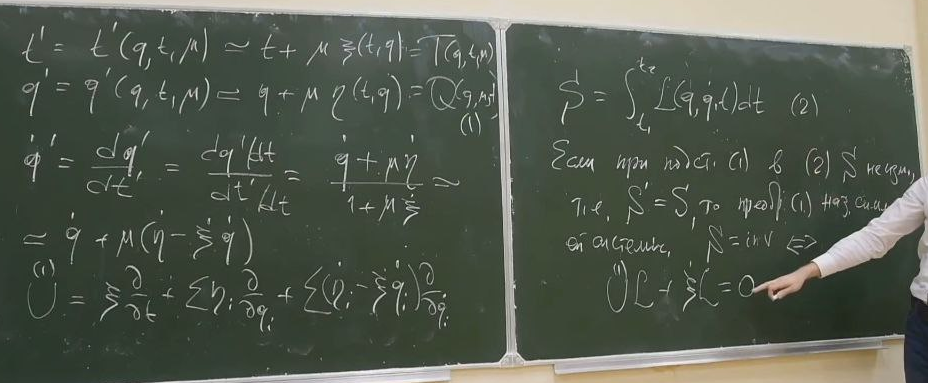 t' = t'(q,t,μ) ≃ t + μ ξ(t,q) = T(q,t,μ)
q' = q'(q,t,μ) ≃ q + μ η(t,q) = Q(q,
(1)
q̇' = dq'/dt' = (dq'/dt)/(dt'/dt) = (q̇ + μη̇)/(1 + μξ̇) ≃
≃ q̇ + μ(η̇ − ξ̇q̇)
U⁽¹⁾ = ξ ∂/∂t + Ση_i ∂/∂q_i + Σ(η̇_i − ξ̇q̇_i) ∂/∂q̇_i
S = ∫_{t₁}^{t₂} L(q,q̇,t)dt (2)
Если при подст. (1) в (2) S неизм,
т.е. S' = S, то преобр. (1) наз. сим
системы, S = inv ⟺
U⁽¹⁾L + ξ̇L = 0